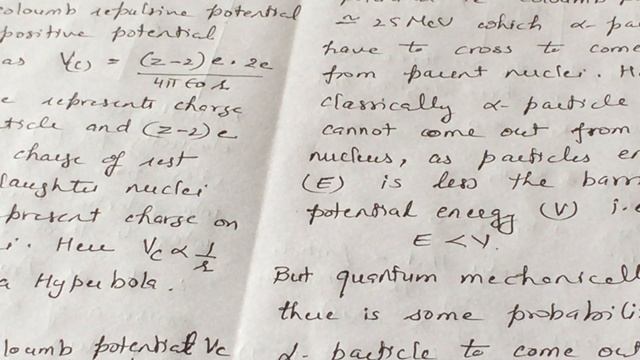 coloumb repulsive potential
positive potential
as V(r) = (z-2)e.2e / 4π ε0 r
e represents charge
ticle and (z-2)e
charge of rest
daughter nuclei
present charge on
i. Here Vc ∝ 1/r
a Hyperbola.
loumb potential Vc
≃ 25 MeV which α-pa
have to cross to come
from parent nuclei. H
classically α-particle
cannot come out from
nucleus, as particles en
(E) is less the barr
potential energy (V) i.e
E < V.
But quantum mechonicall
there is some probabili
α-particle to come ou